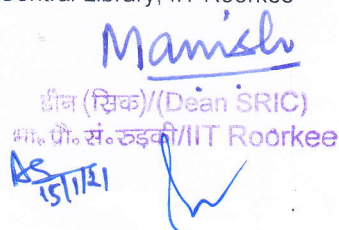 Central Library, IIT Roorkee
Manish
डीन (स्रिक)/(Dean SRIC)
भा. प्रौ. सं. रुड़की/IIT Roorkee
15/1/21